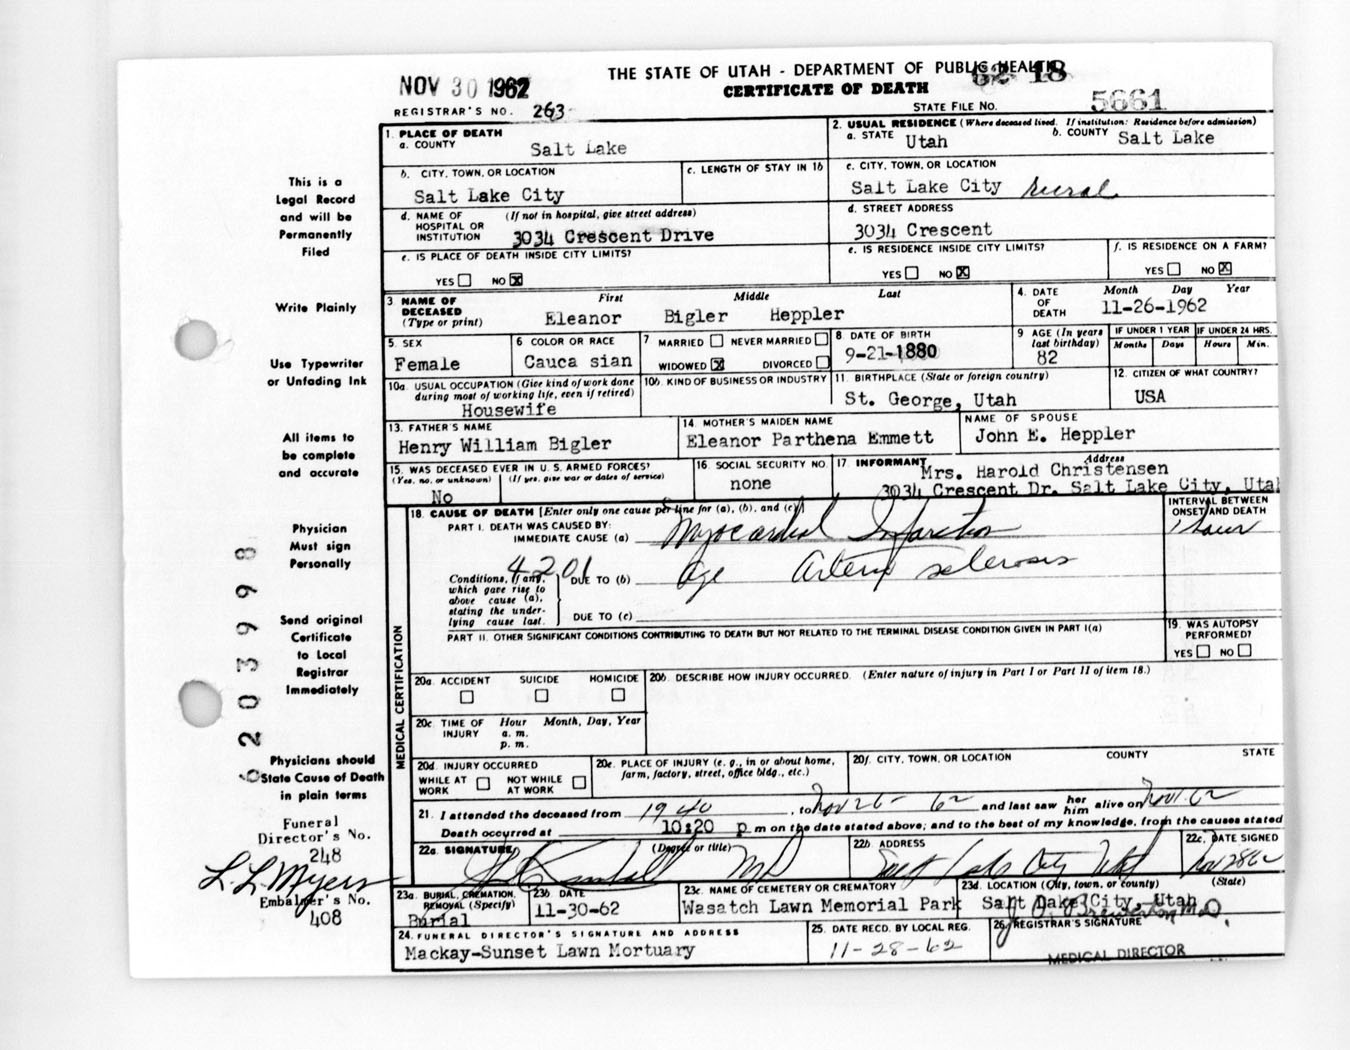 NOV 30 1962
THE STATE OF UTAH - DEPARTMENT OF PUBLIC HEALTH
18
CERTIFICATE OF DEATH
REGISTRAR'S NO. 263
STATE FILE NO. 5661
1. PLACE OF DEATH
a. COUNTY Salt Lake
2. USUAL RESIDENCE (Where deceased lived. If institution: Residence before admission)
a. STATE Utah b. COUNTY Salt Lake
b. CITY, TOWN, OR LOCATION
Salt Lake City
c. LENGTH OF STAY IN 1b
c. CITY, TOWN, OR LOCATION
Salt Lake City rural
d. NAME OF HOSPITAL OR INSTITUTION (If not in hospital, give street address)
3034 Crescent Drive
d. STREET ADDRESS
3034 Crescent
e. IS PLACE OF DEATH INSIDE CITY LIMITS?
YES NO X
e. IS RESIDENCE INSIDE CITY LIMITS?
YES NO X
f. IS RESIDENCE ON A FARM?
YES NO X
3 NAME OF DECEASED (Type or print) First Middle Last
Eleanor Bigler Heppler
4. DATE OF DEATH Month Day Year
11-26-1962
5. SEX
Female
6 COLOR OR RACE
Cauca sian
7 MARRIED NEVER MARRIED
WIDOWED X DIVORCED
8 DATE OF BIRTH
9-21-1880
9 AGE (In years last birthday)
82
IF UNDER 1 YEAR
Months Days
IF UNDER 24 HRS.
Hours Min.
10a. USUAL OCCUPATION (Give kind of work done during most of working life, even if retired)
Housewife
10b. KIND OF BUSINESS OR INDUSTRY
11. BIRTHPLACE (State or foreign country)
St. George, Utah
12. CITIZEN OF WHAT COUNTRY?
USA
13. FATHER'S NAME
Henry William Bigler
14. MOTHER'S MAIDEN NAME
Eleanor Parthena Emmett
NAME OF SPOUSE
John E. Heppler
15. WAS DECEASED EVER IN U. S. ARMED FORCES?
(Yes, no, or unknown) (If yes, give war or dates of service)
No
16. SOCIAL SECURITY NO.
none
17. INFORMANT Address
Mrs. Harold Christensen
3034 Crescent Dr. Salt Lake City, Utah
MEDICAL CERTIFICATION
18. CAUSE OF DEATH [Enter only one cause per line for (a), (b), and (c)]
INTERVAL BETWEEN ONSET AND DEATH
PART I. DEATH WAS CAUSED BY:
IMMEDIATE CAUSE (a) Myocardial Infarction 1 hour
4201
Conditions, if any, which gave rise to above cause (a), stating the under-lying cause last.
DUE TO (b) Age Arterio sclerosis
DUE TO (c)
PART II. OTHER SIGNIFICANT CONDITIONS CONTRIBUTING TO DEATH BUT NOT RELATED TO THE TERMINAL DISEASE CONDITION GIVEN IN PART I(a)
19. WAS AUTOPSY PERFORMED?
YES NO
20a. ACCIDENT SUICIDE HOMICIDE
20b. DESCRIBE HOW INJURY OCCURRED. (Enter nature of injury in Part I or Part II of item 18.)
20c. TIME OF INJURY Hour Month, Day, Year
a. m.
p. m.
20d. INJURY OCCURRED
WHILE AT WORK NOT WHILE AT WORK
20e. PLACE OF INJURY (e. g., in or about home, farm, factory, street, office bldg., etc.)
20f. CITY, TOWN, OR LOCATION COUNTY STATE
21. I attended the deceased from 1940, to Nov 26- 62 and last saw her him alive on Nov. 62
Death occurred at 10:20 p m on the date stated above; and to the best of my knowledge, from the causes stated
22a. SIGNATURE (Degree or title)
MD
22b. ADDRESS
Salt Lake City Utah
22c. DATE SIGNED
Nov 28 62
23a. BURIAL, CREMATION, REMOVAL (Specify)
Burial
23b. DATE
11-30-62
23c. NAME OF CEMETERY OR CREMATORY
Wasatch Lawn Memorial Park
23d. LOCATION (City, town, or county) (State)
Salt Lake City, Utah
24. FUNERAL DIRECTOR'S SIGNATURE AND ADDRESS
Mackay-Sunset Lawn Mortuary
25. DATE RECD. BY LOCAL REG.
11-28-62
26. REGISTRAR'S SIGNATURE
M.D.
MEDICAL DIRECTOR
This is a
Legal Record
and will be
Permanently
Filed
Write Plainly
Use Typewriter
or Unfading Ink
All items to
be complete
and accurate
Physician
Must sign
Personally
Send original
Certificate
to Local
Registrar
Immediately
Physicians should
State Cause of Death
in plain terms
Funeral
Director's No.
248
L. L. Myers
Embalmer's No.
408